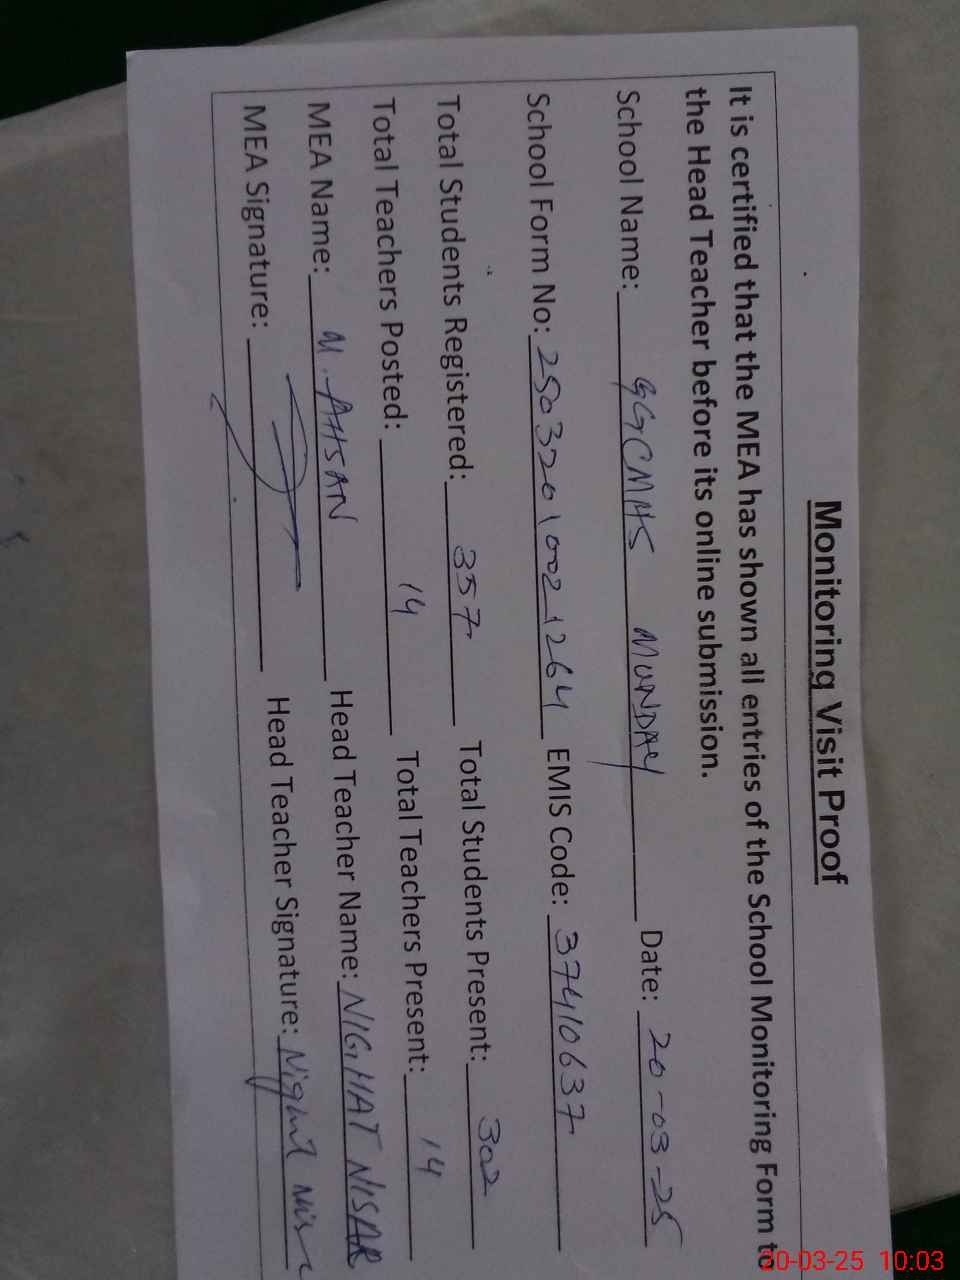 Monitoring Visit Proof
It is certified that the MEA has shown all entries of the School Monitoring Form to
the Head Teacher before its online submission.
School Name: GGCMHS MUNDAY Date: 20-03-25
School Form No: 25032010021264 EMIS Code: 37410637
Total Students Registered: 357 Total Students Present: 302
Total Teachers Posted: 14 Total Teachers Present: 14
MEA Name: M. AHSAN Head Teacher Name: NIGHAT NISAR
MEA Signature: Head Teacher Signature: Nighat Nisar
20-03-25 10:03